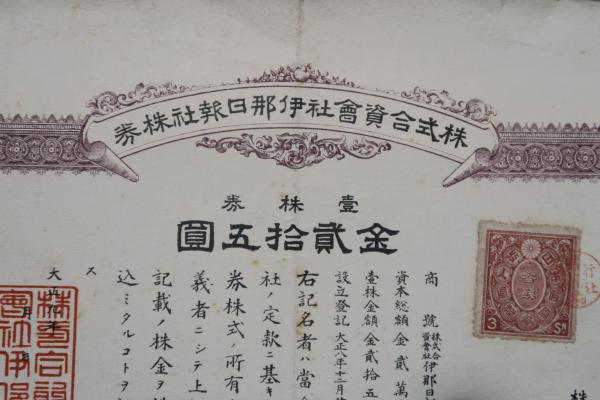 株式合資會社伊那日報社株券
壹株券
金貳拾五圓
商號 株式合資會社 伊那日
資本總額金貳萬
壹株金額金貳拾五
設立登記 大正八年十二月
右記名者ハ當會
社ノ定款ニ基キ
券株式ノ所有
義者ニシテ上
記載ノ株金ヲ
込ミタルコトヲ
ス
大正九年
月
參錢
3 Sn
株